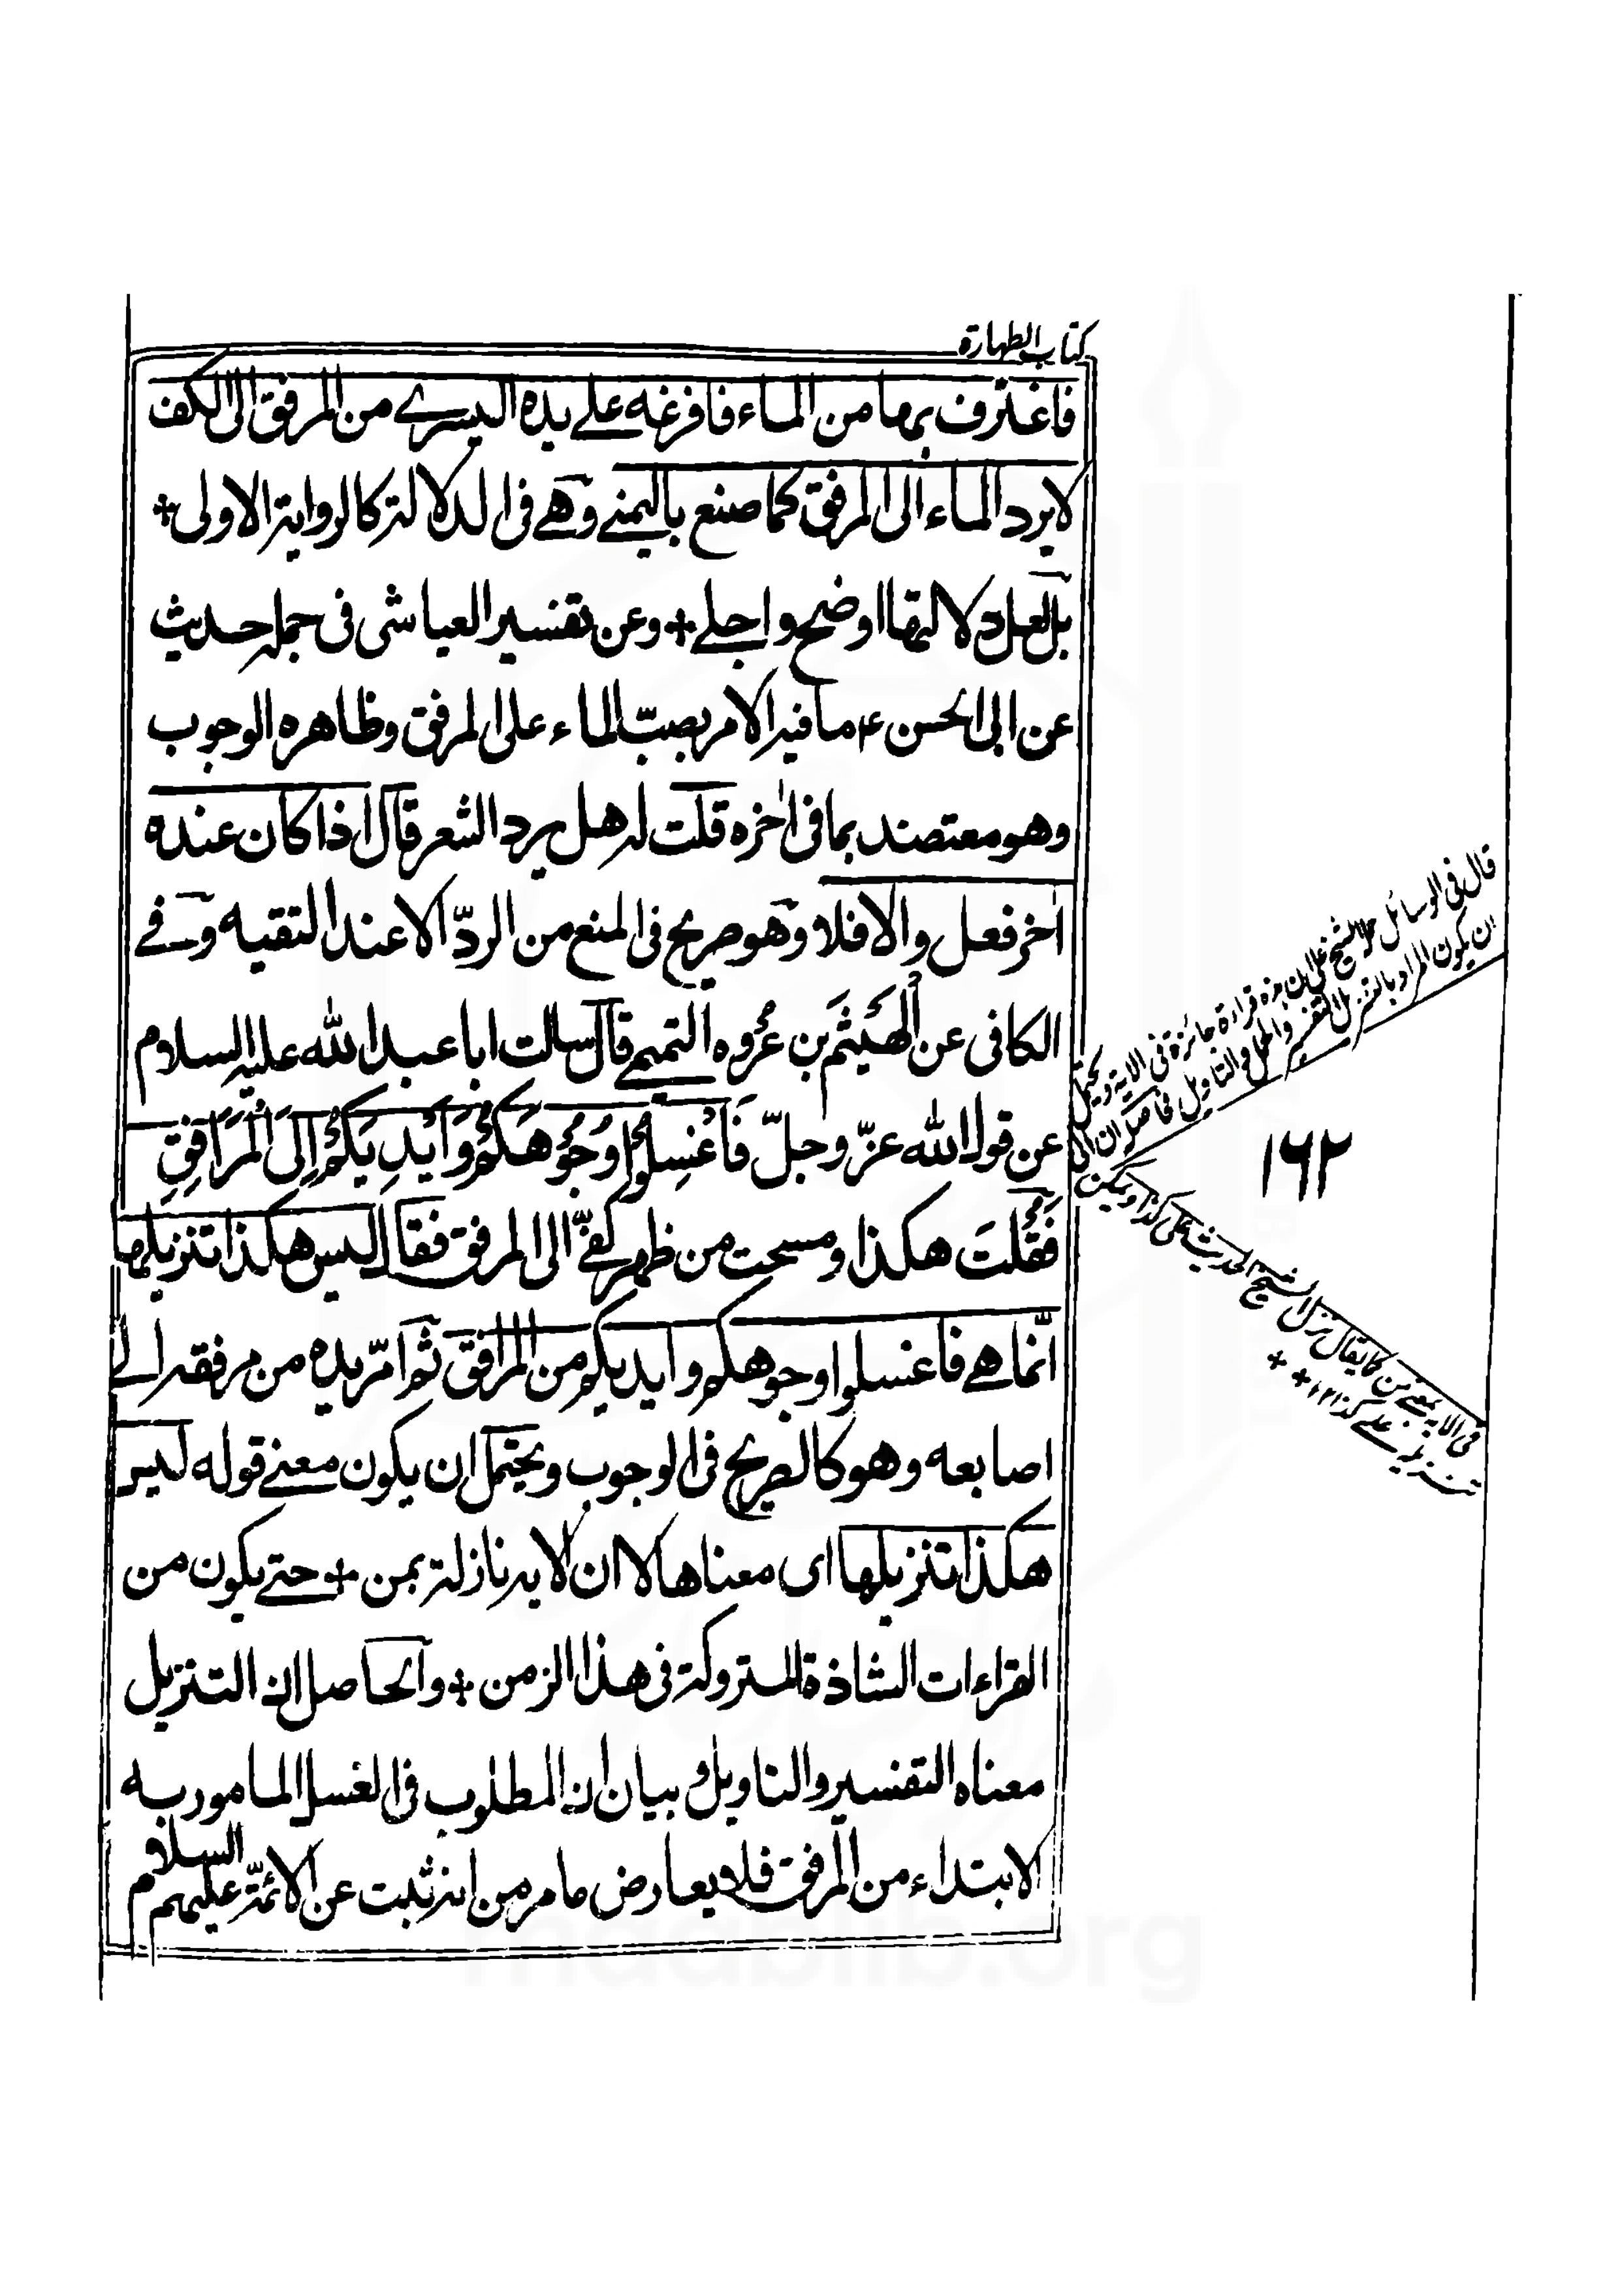 كتاب الطهارة
فاغترف بها من الماء فافرغه على يده اليسرے من المرفق الى الكف
لا يرد الماء الى المرفق كما صنع باليمنے وهے فى الدلالة كالرواية الاولى +
بل لعل دلالتها اوضح واجلے + وعن تفسير العياشى فى جملة حديث
عن ابى الحسن ؏ ما فيه الامر بصبّ الماء على المرفق وظاهره الوجوب
وهو معتضد بما فى اٰخره قلت له هل يرد الشعر قال اذا كان عنده
اٰخر فعل والا فلا وهو صريح فى المنع من الردّ الا عند التقيه وفے
الكافى عن الهَيثَم بن عُروه التميمے قال سالت ابا عبد الله عليه السلام
عن قول الله عزّ وجلّ فَاغْسِلُوا وُجُوهَكُمْ وَاَيْدِيَكُمْ اِلَى الْمَرَافِقِ
فَقُلتَ هكذا ومسحت من ظهر كفّے الى المرفق فقال ليس هكذا تنزيلها
انّما هے فاغسلوا وجوهكم وايديكم من المرافق ثم امرّ يده من مرفقه الے
اصابعه وهو كالصريح فى الوجوب ويحتمل ان يكون معنے قوله ليس
هكذا تنزيلها اى معناها لا ان الاية نازلة بمن + حتے يكون من
القراءات الشاذة المتروكة فى هذا الزمن + والحاصل ان التنزيل
معناه التفسير والتاويل و بيان ان المطلوب فى الغسل المامور به
الابتداء من المرفق فلا يعارض ما مر من انه ثبت عن الائمّة عليهم السلام
قال فى الوسائل حمل الشيخ على ان هذه قراءة جائزة فى الاية ويحتمل
ان يكون المراد بالتنزيل التفسير والحمل والتاويل فحاصله ان الى
فى الاية بمعنے من كما يقال نزل الشيخ الحديث على كذا ويمكن
تنزيله علے كذا ١٢ + +
١٦٢